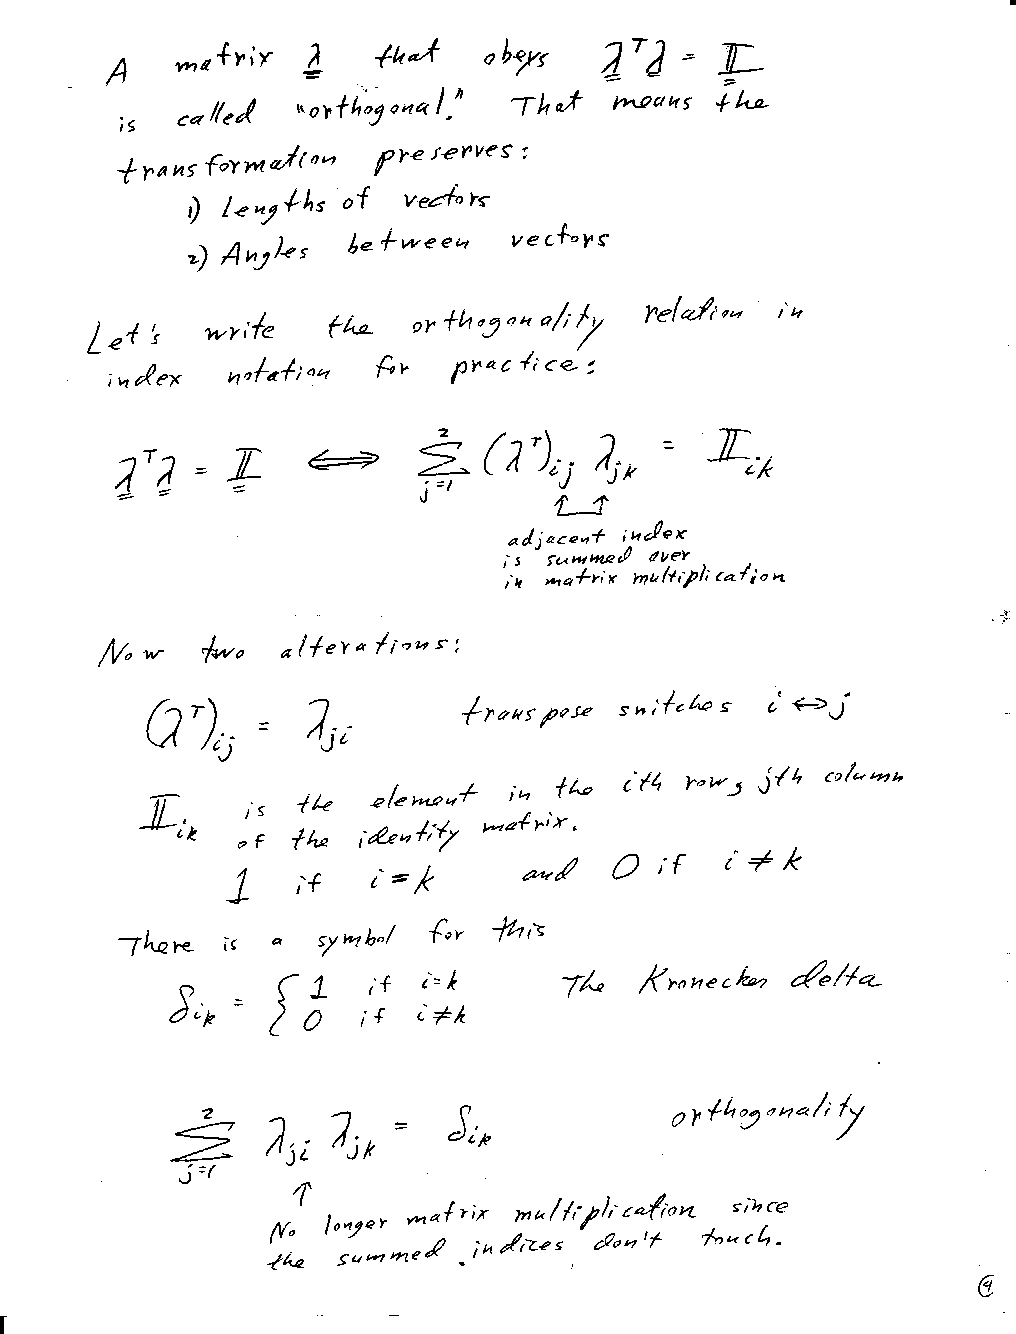 A matrix λ that obeys λᵀλ = 𝕀
is called "orthogonal." That means the
transformation preserves:
1) Lengths of vectors
2) Angles between vectors
Let's write the orthogonality relation in
index notation for practice:
λᵀλ = 𝕀 ⟺ Σ_{j=1}^{2} (λᵀ)_{ij} λ_{jk} = 𝕀_{ik}
adjacent index
is summed over
in matrix multiplication
Now two alterations:
(λᵀ)_{ij} = λ_{ji} transpose switches i ↔ j
𝕀_{ik} is the element in the ith row, jth column
of the identity matrix.
1 if i = k and 0 if i ≠ k
There is a symbol for this
δ_{ik} = { 1 if i=k The Kronecker delta
0 if i≠k
Σ_{j=1}^{2} λ_{ji} λ_{jk} = δ_{ik} orthogonality
↑
No longer matrix multiplication since
the summed indices don't touch.
④